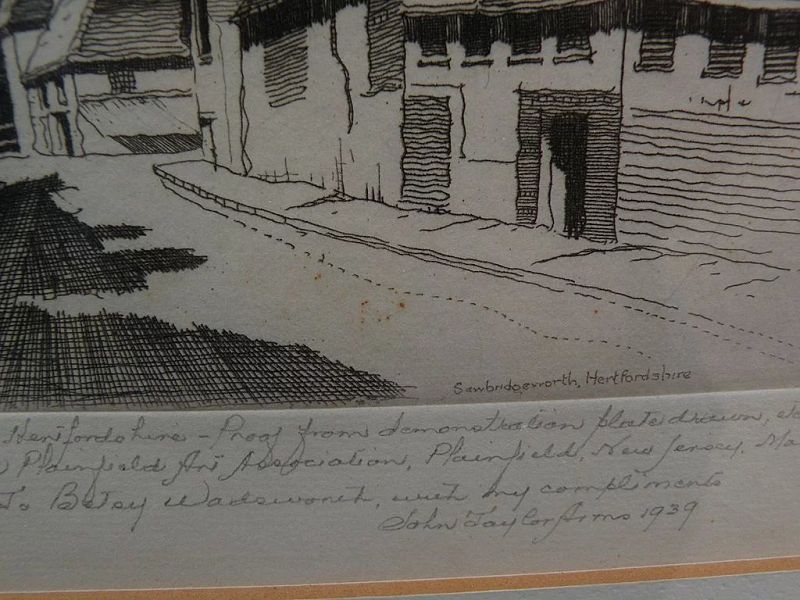 Sawbridgeworth, Hertfordshire
Hertfordshire - Proof from demonstration plate drawn,
Plainfield Art Association, Plainfield, New Jersey, Ma
To Betsy Wadsworth, with my compliments
John Taylor Arms 1939